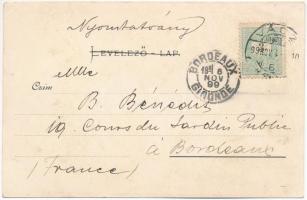 Nyomtatvány
LEVELEZŐ-LAP.
Mlle
Czim
B. Bénédit
19, Cours du Jardin Public
à Bordeaux
(France)
BORDEAUX
6
NOV
99
GIRONDE